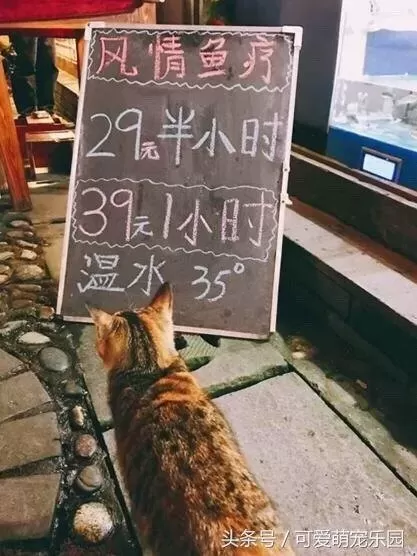 风情鱼疗
29元半小时
39元1小时
温水 35°
头条号 / 可爱萌宠乐园